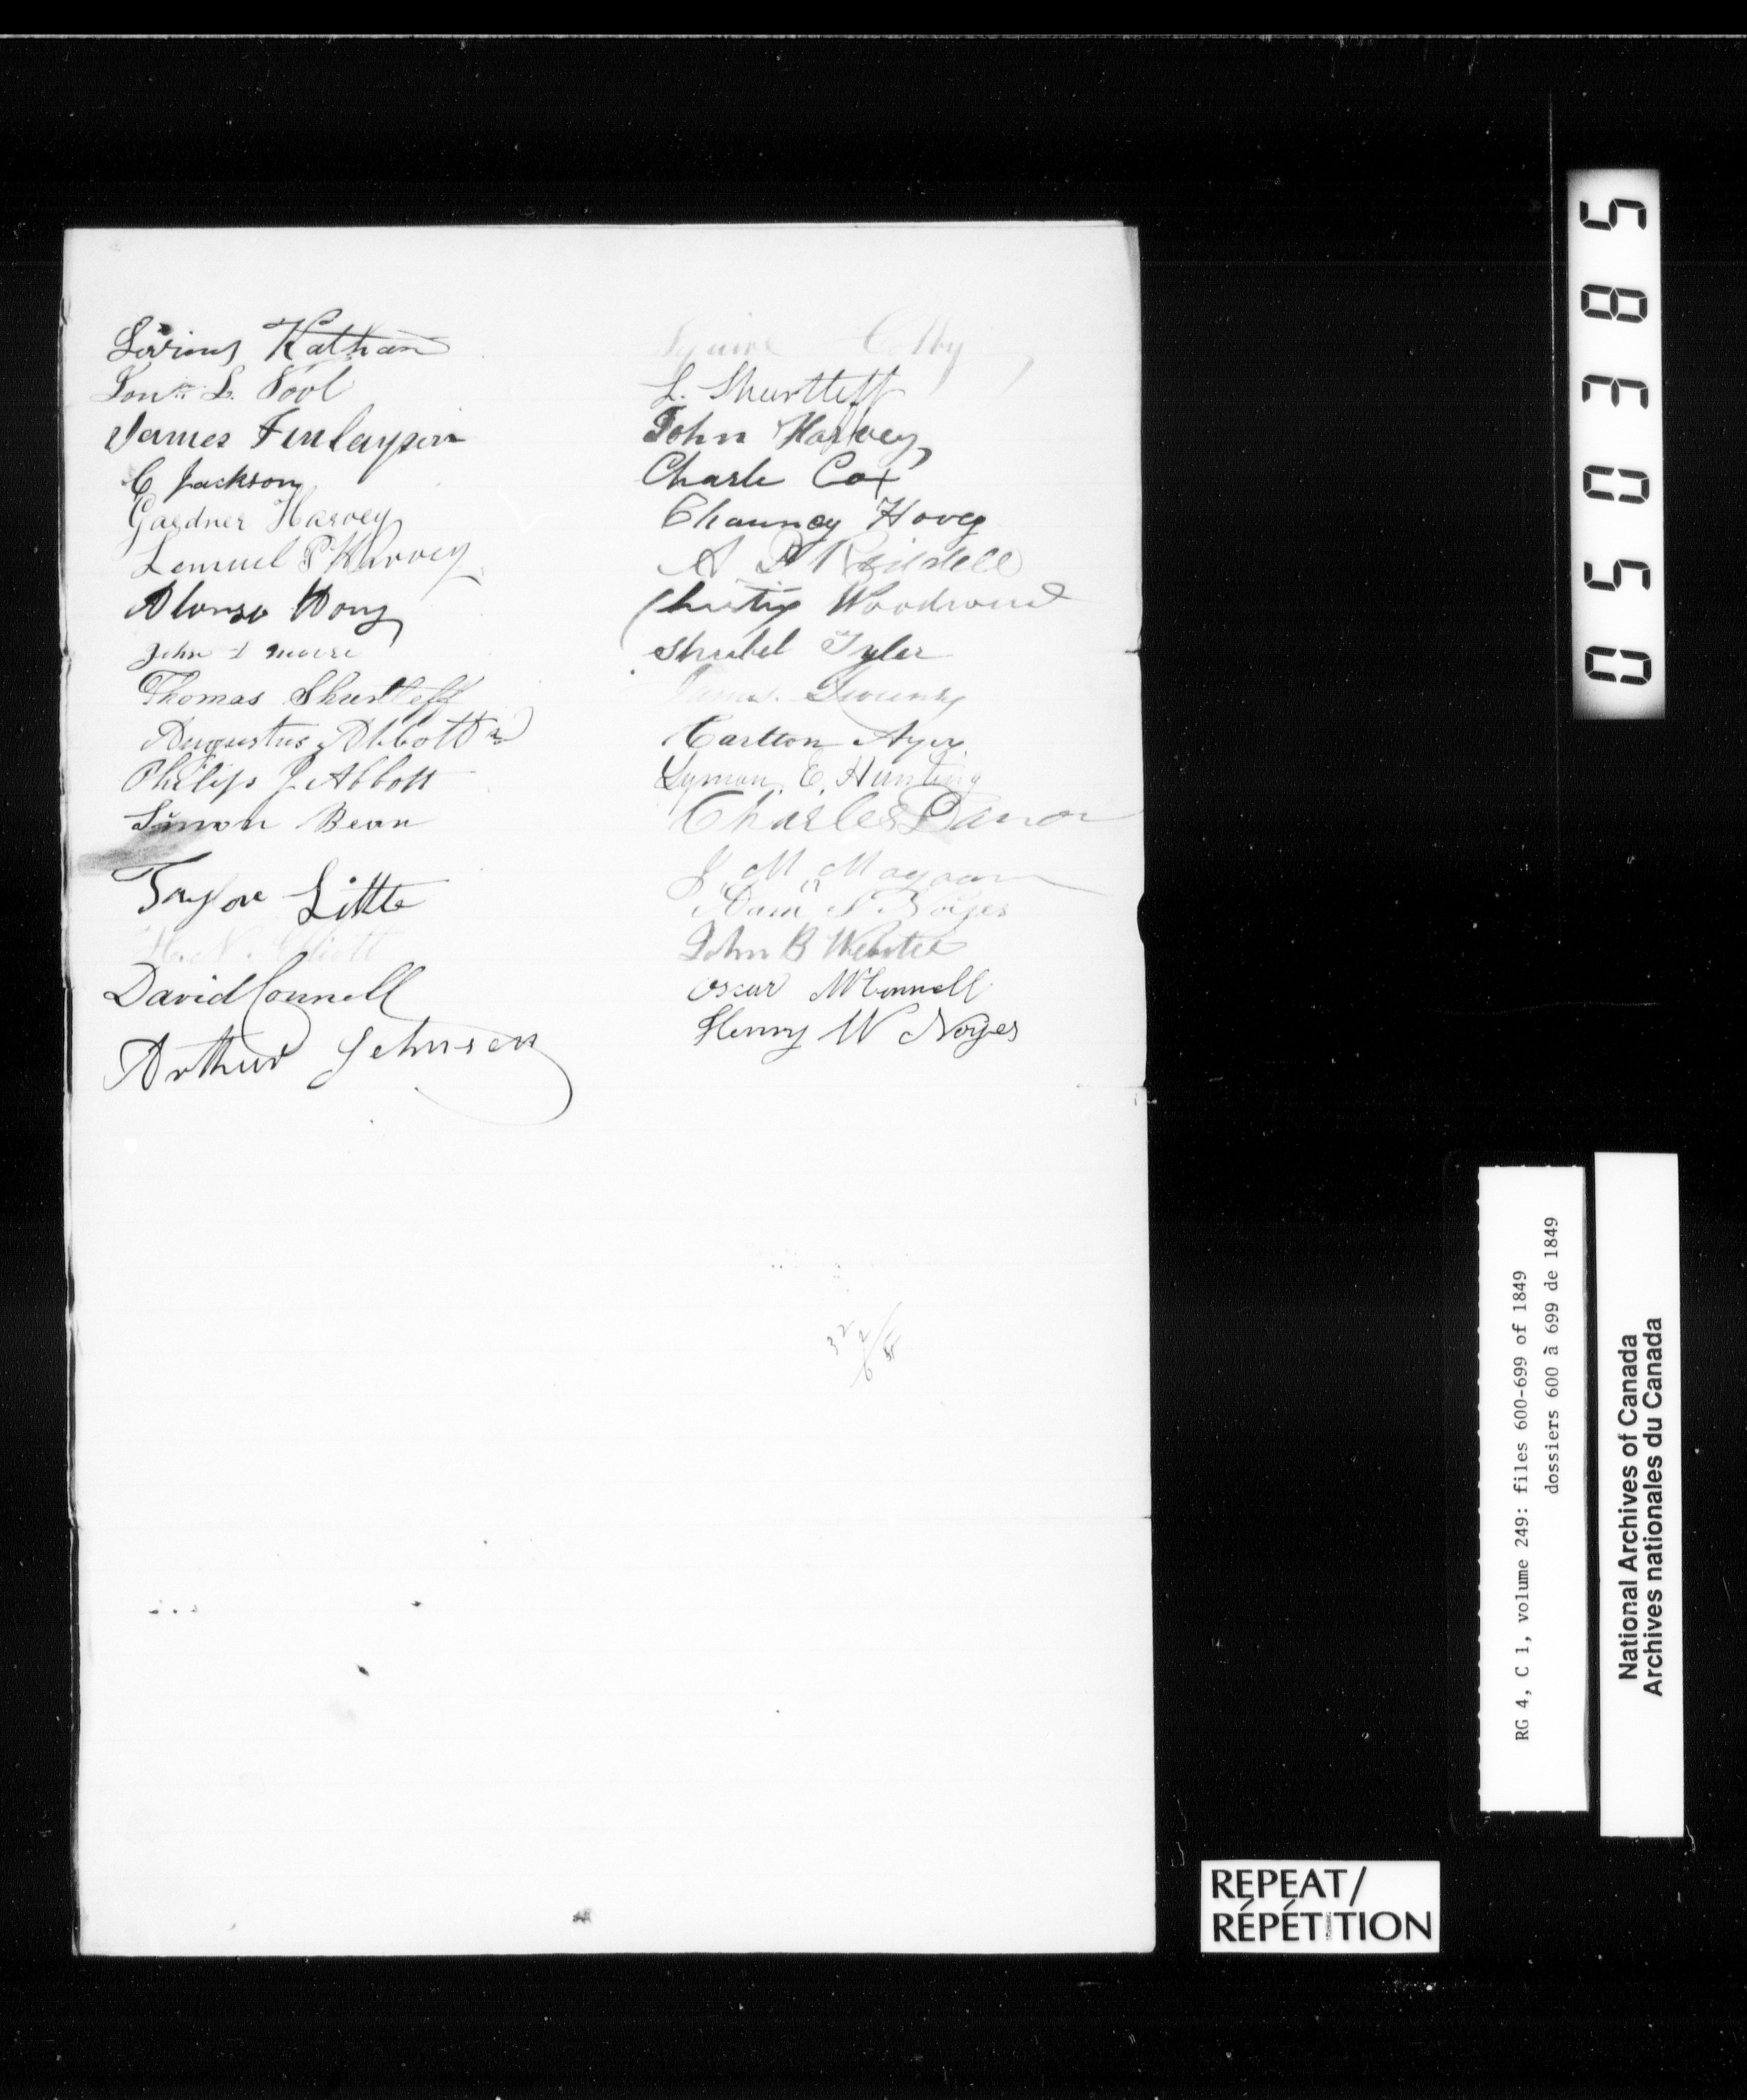 Kathan
L. Pool
James Finlayson
C Jackson
Gardner Harvey
Lemuel P Harvey
Alonzo Hovy
John I moore
Thomas Shurtleff
Augustus Abbott
Philip J Abbott
Simon Bean
Taylor Little
H. N.
David Connell
Arthur Johnson
Squire Colby
L. Shurtleff
John Harvey
Charle Cox
Chauncy Hovey
A
Woodward
Shubel Tyler
James
Carlton Ayer
Lyman E. Hunting
Charles
J. M.
S Noyes
John B Webster
Oscar McConnell
Henry W Noyes
050385
RG 4, C 1, volume 249: files 600-699 of 1849
dossiers 600 à 699 de 1849
National Archives of Canada
Archives nationales du Canada
REPEAT/
RÉPÉTITION